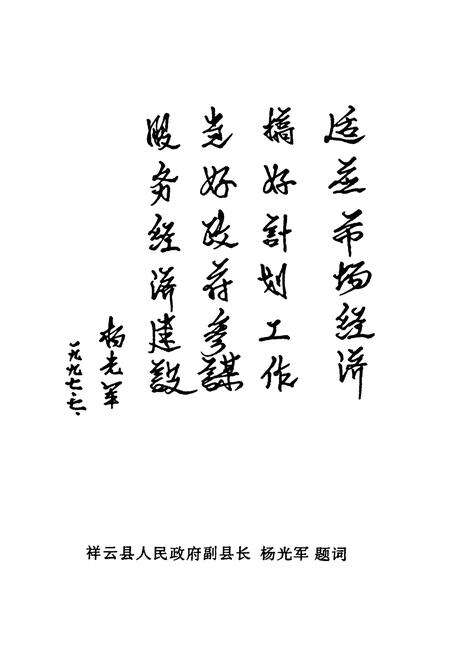 适应市场经济
搞好計划工作
当好政府参謀
服务经济建設
杨光军
一九九七.七.
祥云县人民政府副县长 杨光军 题词